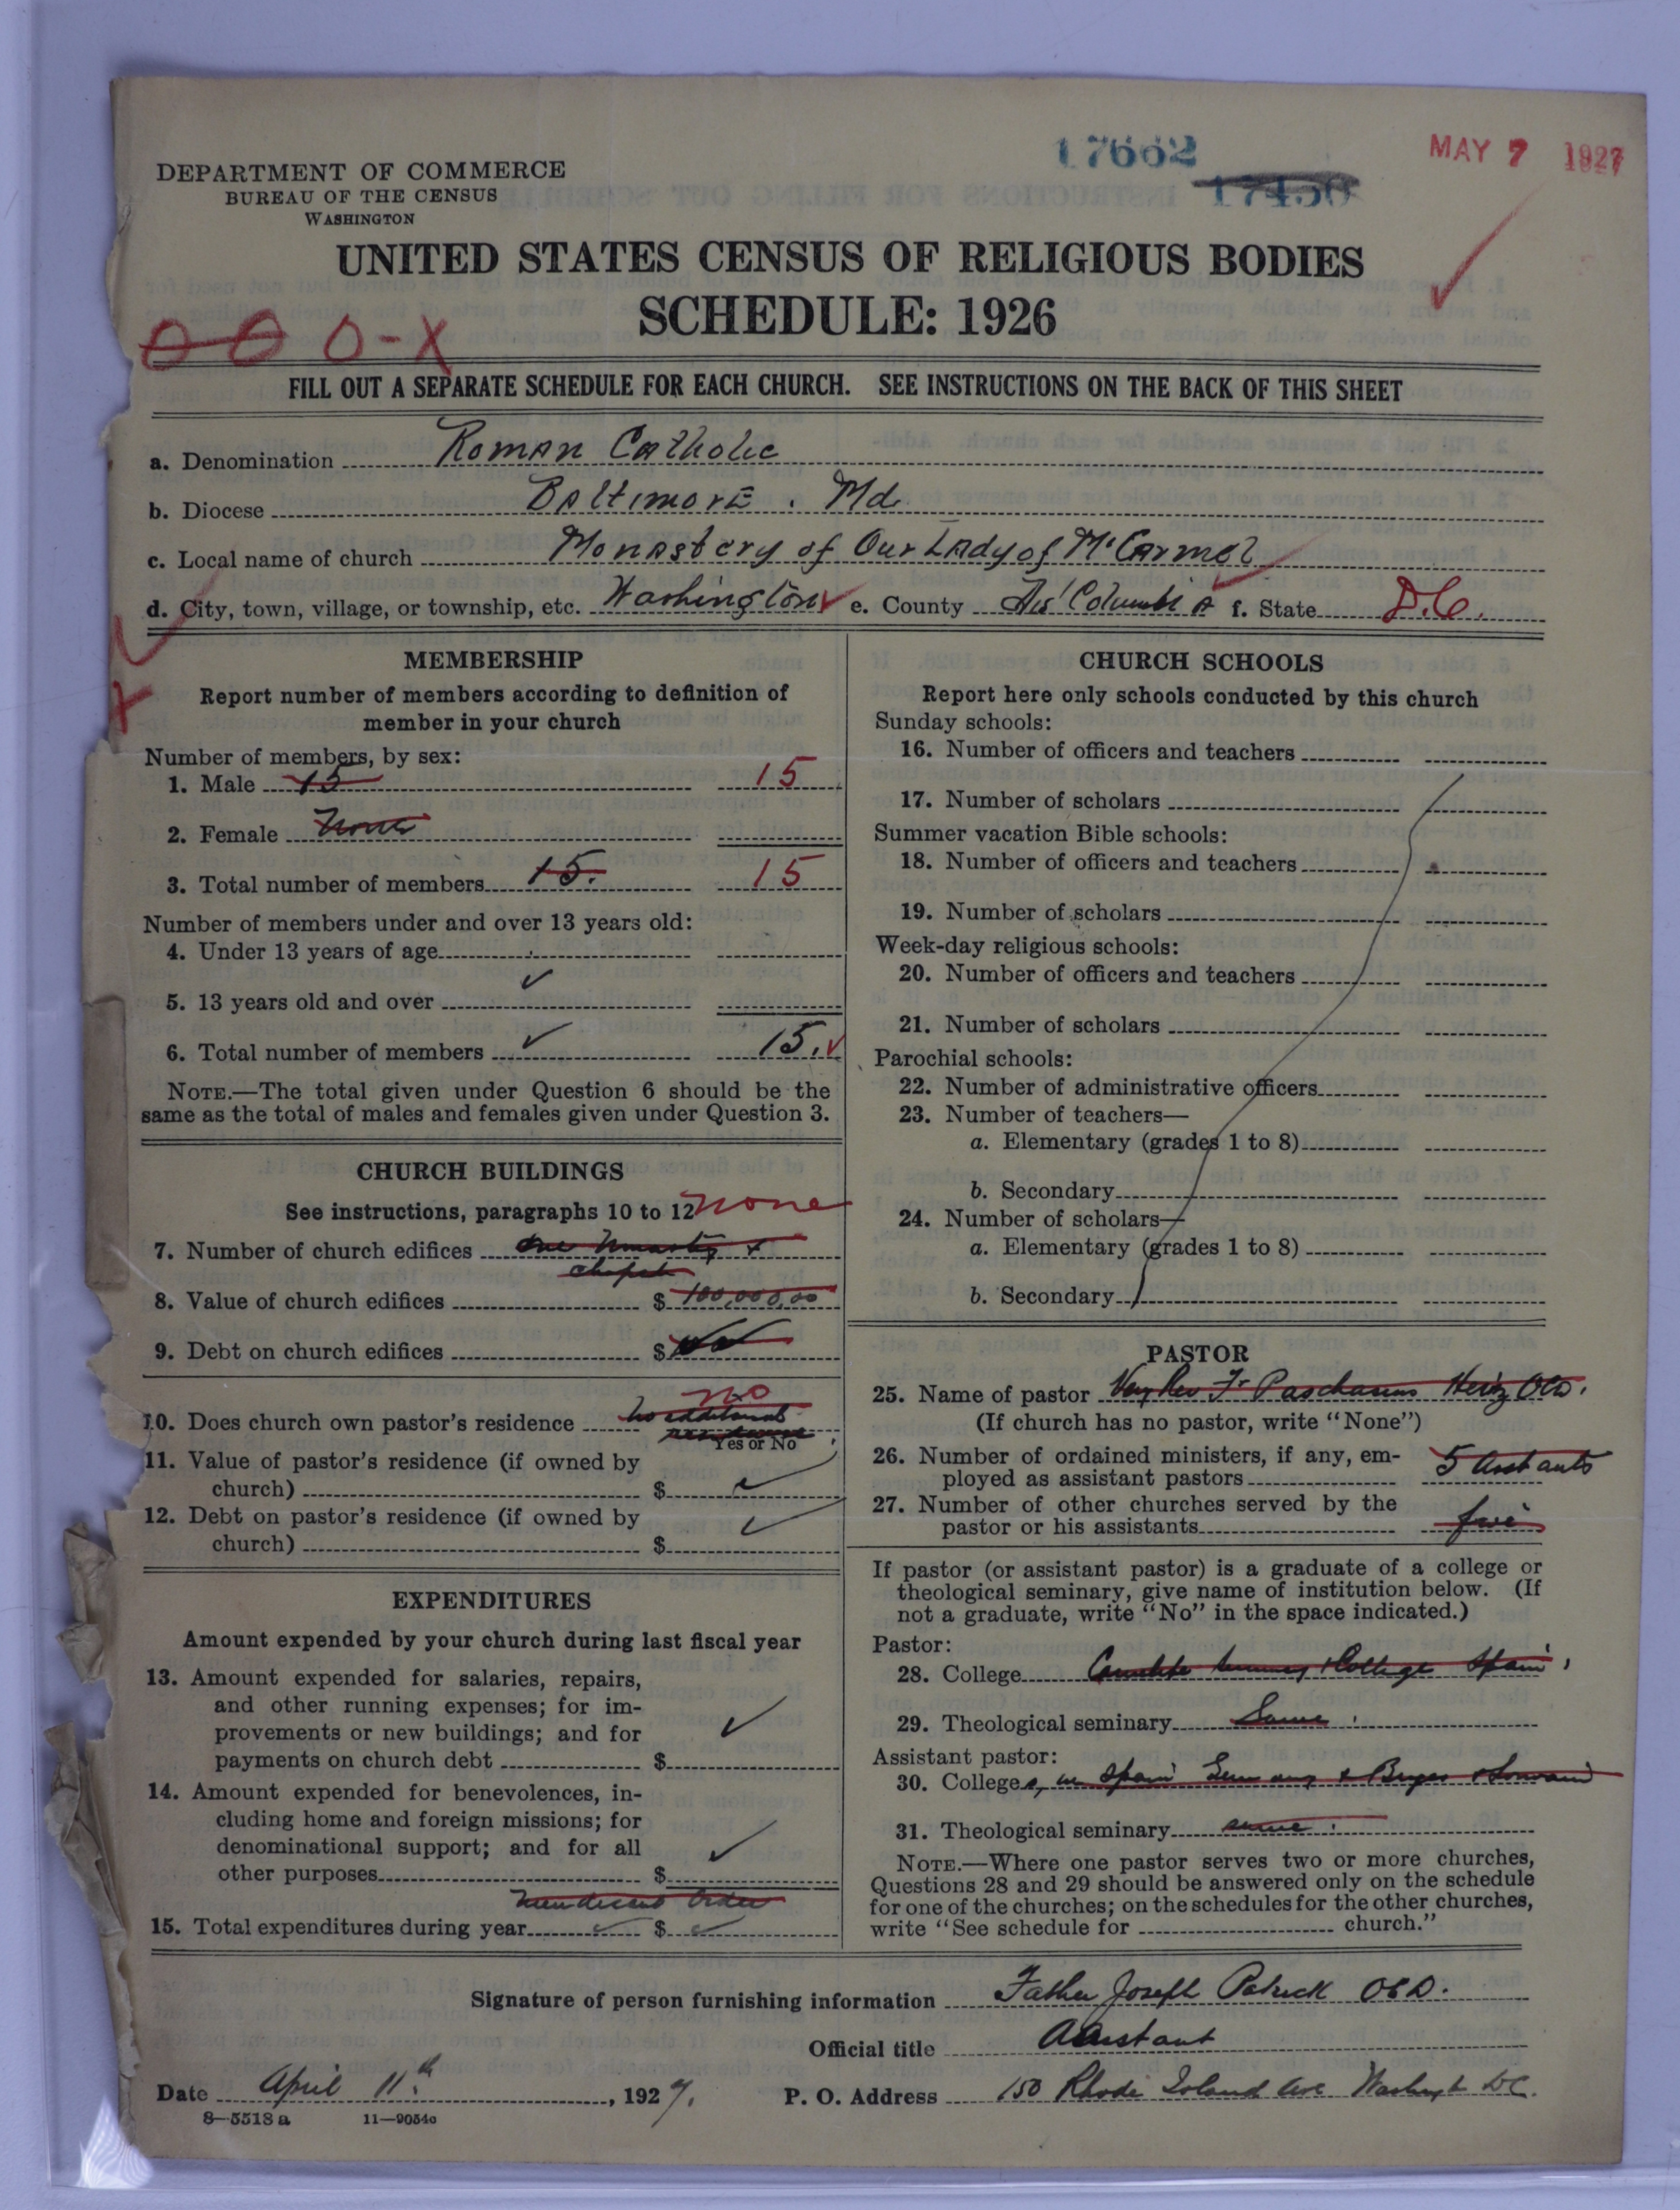 17662
17450
MAY 7 1927
DEPARTMENT OF COMMERCE
BUREAU OF THE CENSUS
WASHINGTON
UNITED STATES CENSUS OF RELIGIOUS BODIES
SCHEDULE: 1926
0-X
FILL OUT A SEPARATE SCHEDULE FOR EACH CHURCH. SEE INSTRUCTIONS ON THE BACK OF THIS SHEET
a. Denomination Roman Catholic
b. Diocese Baltimore. Md
c. Local name of church Monastery of Our Lady of Mt Carmel
d. City, town, village, or township, etc. Washington e. County Dis' Columbia f. State D.C.
MEMBERSHIP
Report number of members according to definition of
member in your church
Number of members, by sex:
1. Male 15 15
2. Female None
3. Total number of members 15. 15
Number of members under and over 13 years old:
4. Under 13 years of age
5. 13 years old and over ✓
6. Total number of members ✓ 15. ✓
NOTE.—The total given under Question 6 should be the
same as the total of males and females given under Question 3.
CHURCH BUILDINGS
See instructions, paragraphs 10 to 12 none
7. Number of church edifices one Monastery +
chapel
8. Value of church edifices $ 100,000,00
9. Debt on church edifices $
no
10. Does church own pastor's residence no additional
residence
Yes or No
11. Value of pastor's residence (if owned by
church) $ ✓
12. Debt on pastor's residence (if owned by
church) $ ✓
EXPENDITURES
Amount expended by your church during last fiscal year
13. Amount expended for salaries, repairs,
and other running expenses; for im-
provements or new buildings; and for
payments on church debt $ ✓
14. Amount expended for benevolences, in-
cluding home and foreign missions; for
denominational support; and for all
other purposes $ ✓
Mendicant Order
15. Total expenditures during year ✓ $ ✓
CHURCH SCHOOLS
Report here only schools conducted by this church
Sunday schools:
16. Number of officers and teachers
17. Number of scholars
Summer vacation Bible schools:
18. Number of officers and teachers
19. Number of scholars
Week-day religious schools:
20. Number of officers and teachers
21. Number of scholars
Parochial schools:
22. Number of administrative officers
23. Number of teachers—
a. Elementary (grades 1 to 8)
b. Secondary
24. Number of scholars—
a. Elementary (grades 1 to 8)
b. Secondary
PASTOR
25. Name of pastor Very Rev Fr Paschasius Heriz OCD.
(If church has no pastor, write "None")
26. Number of ordained ministers, if any, em-
ployed as assistant pastors 5
27. Number of other churches served by the
pastor or his assistants five
If pastor (or assistant pastor) is a graduate of a college or
theological seminary, give name of institution below. (If
not a graduate, write "No" in the space indicated.)
Pastor:
28. College Carmelite Seminary + College Spain
29. Theological seminary Same
Assistant pastor:
30. Colleges, in Spain
31. Theological seminary same
NOTE.—Where one pastor serves two or more churches,
Questions 28 and 29 should be answered only on the schedule
for one of the churches; on the schedules for the other churches,
write "See schedule for church."
Signature of person furnishing information Father Joseph Patrick OCD.
Official title Assistant
Date April 11th, 1927. P. O. Address 150 Rhode Island Ave Washingt DC.
8—5518 a 11—9054c